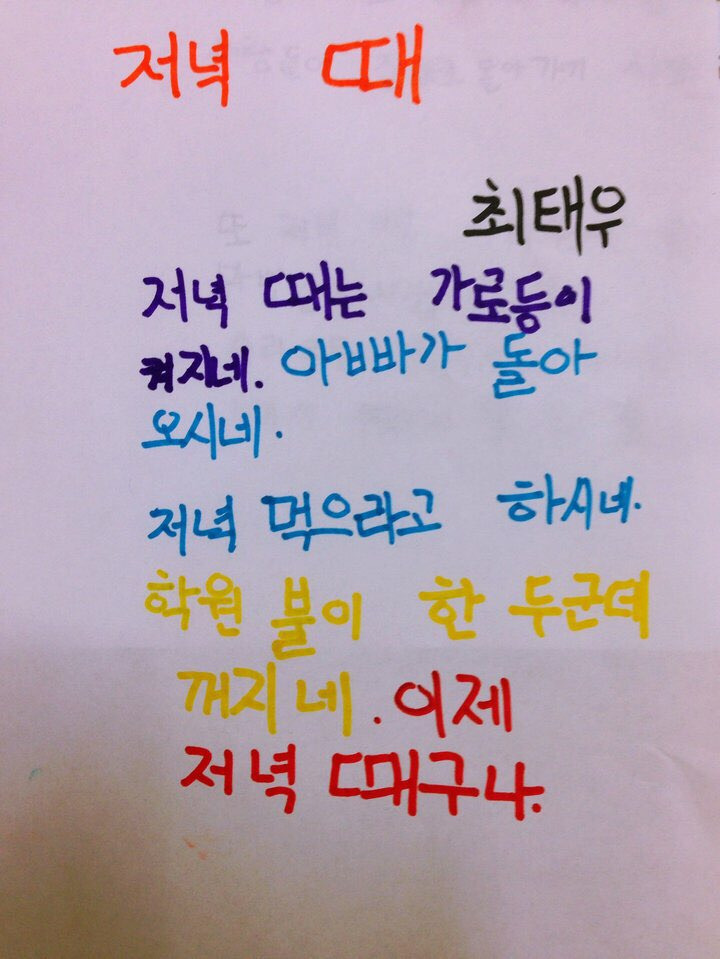 저녁 때
최태우
저녁 때는 가로등이
켜지네. 아빠가 돌아
오시네.
저녁 먹으라고 하시네.
학원 불이 한 두군데
꺼지네. 이제
저녁 때구나.